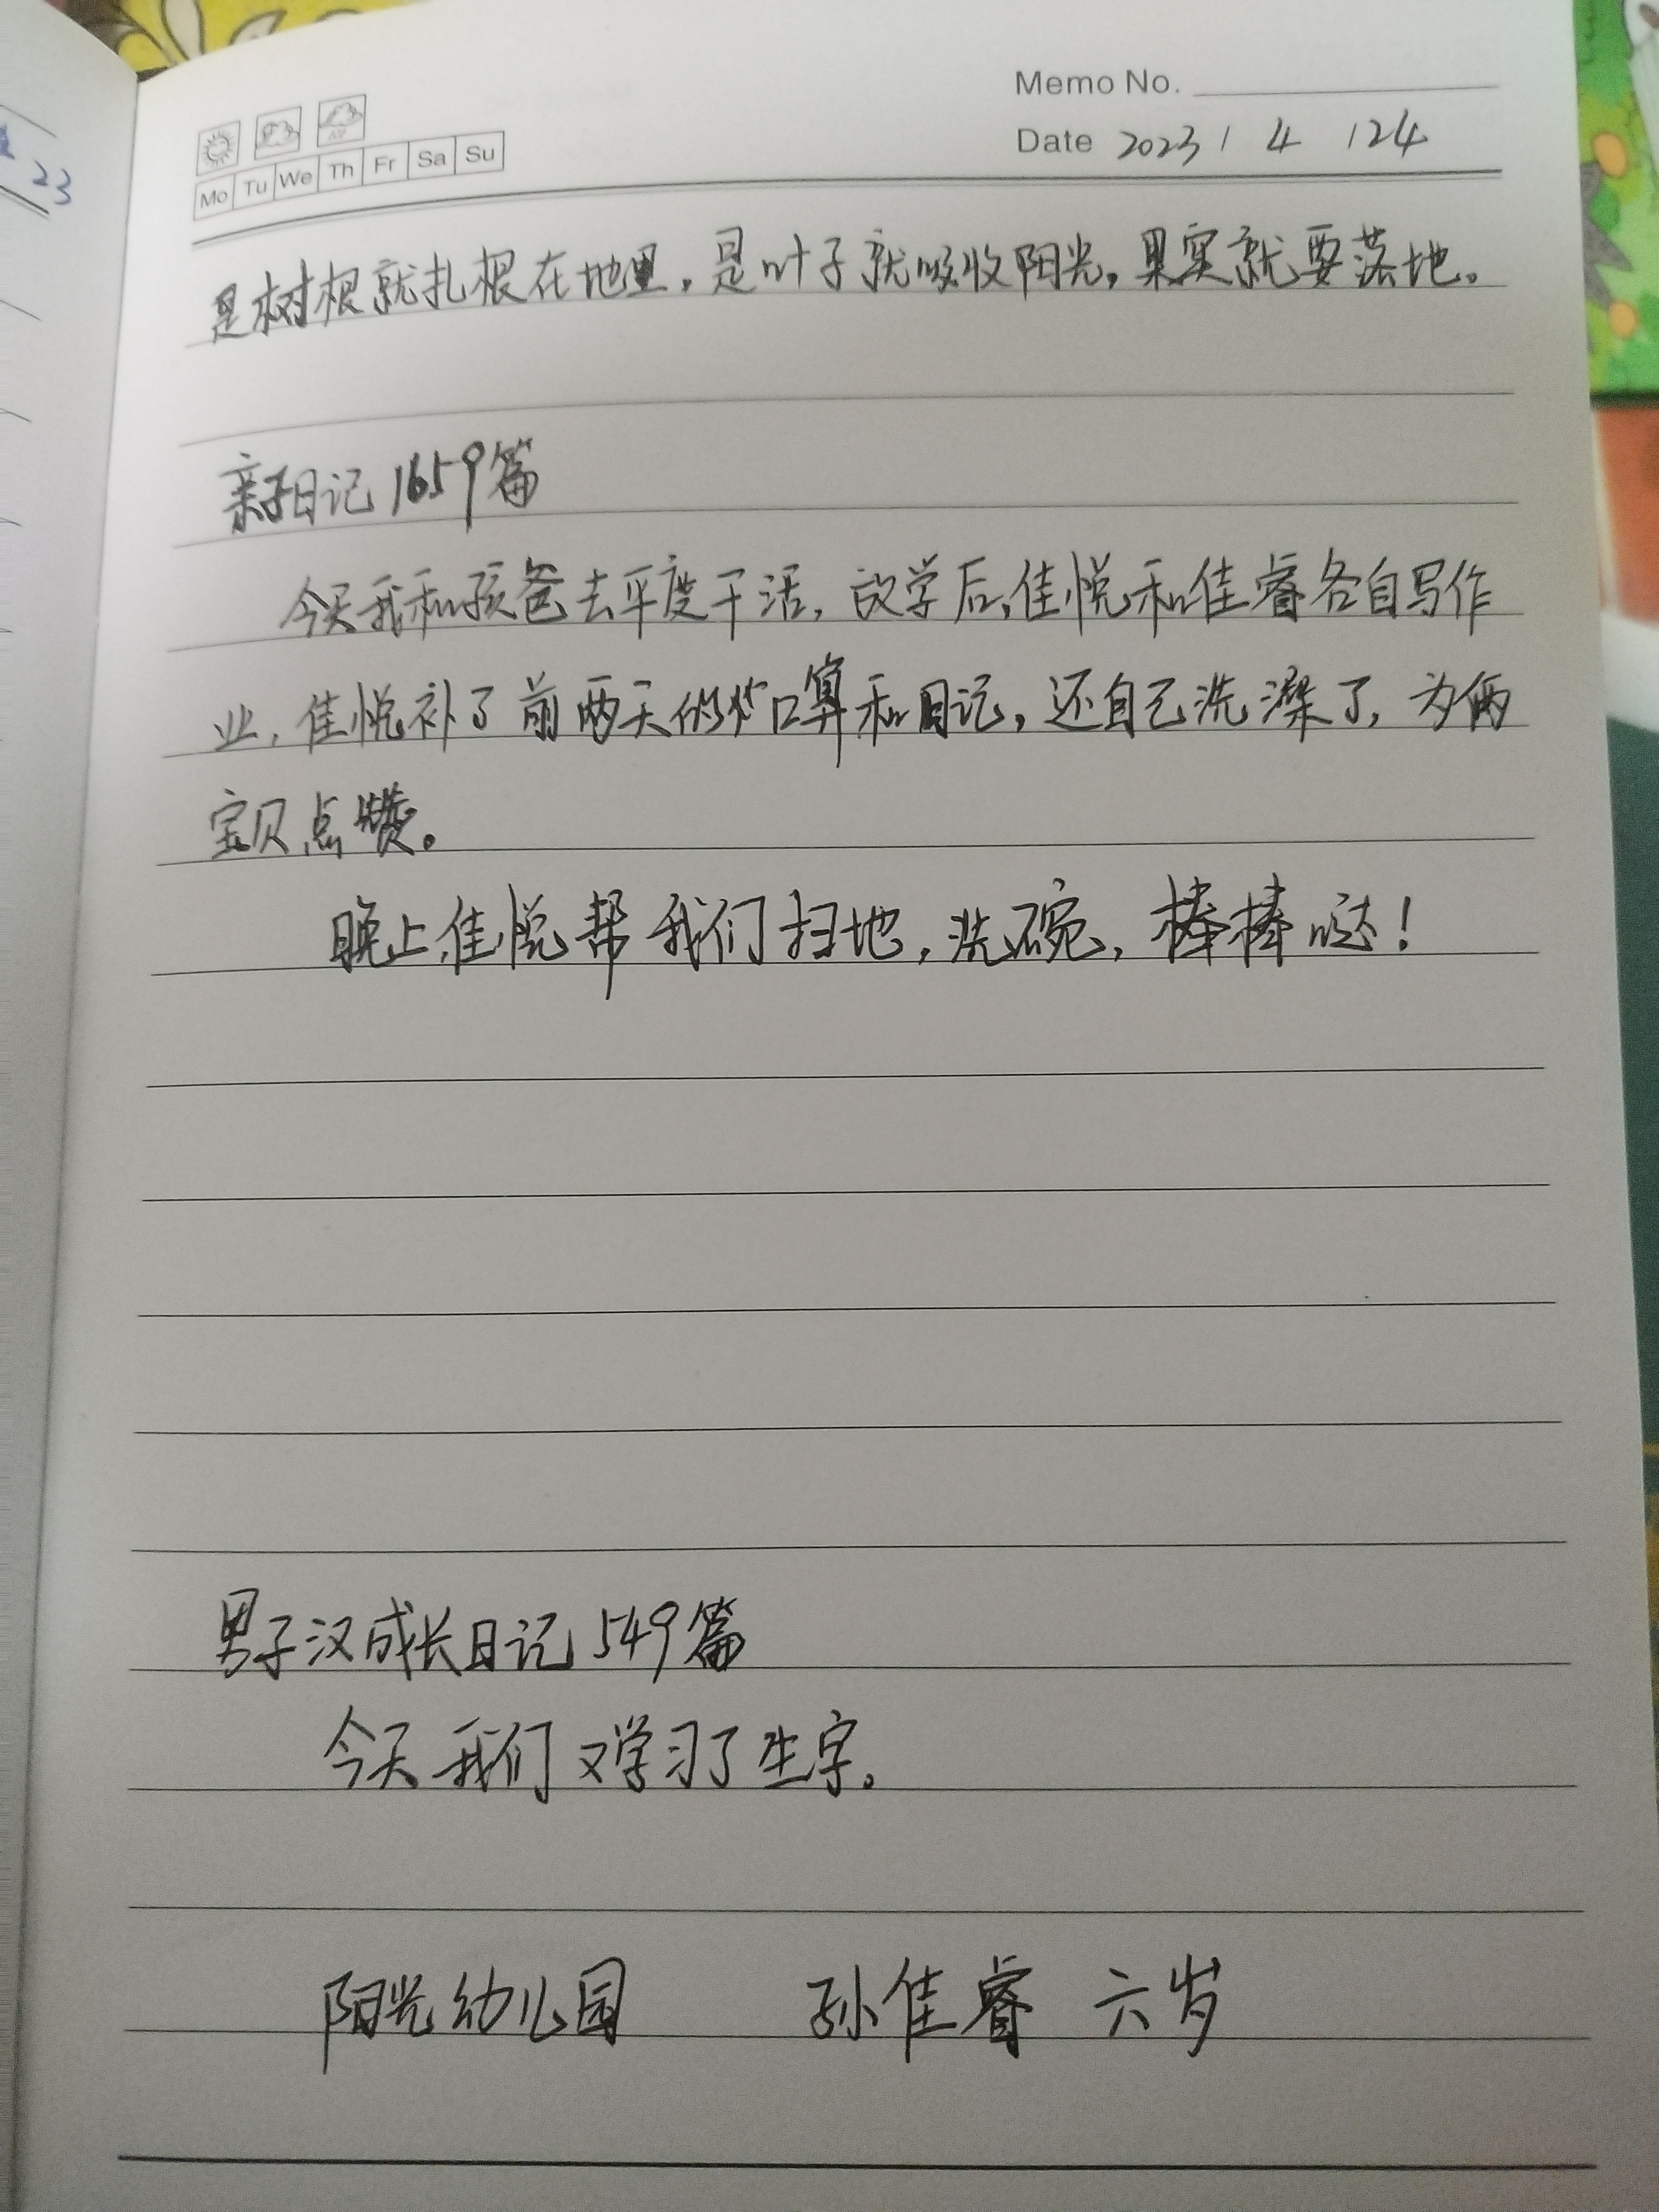 Memo No.
Date 2023 / 4 / 24
Mo Tu We Th Fr Sa Su
23
是树根就扎根在地里，是叶子就吸收阳光，果实就要落地。
亲子日记1659篇
今天我和孩爸去平度干活，放学后，佳悦和佳睿各自写作
业，佳悦补了前两天的口算和日记，还自己洗澡了，为俩
宝贝点赞。
晚上，佳悦帮我们扫地，洗碗，棒棒哒！
男子汉成长日记549篇
今天我们又学习了生字。
阳光幼儿园 孙佳睿 六岁